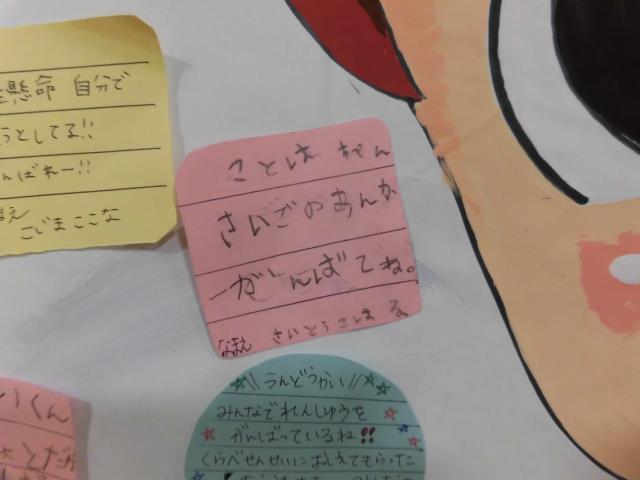 懸命 自分で
うとしてる!!
んばれー!!
こじまここな
ことは ちゃん
さいごのあんか
ーがんばてね。
なまえ さいとうこはる
くん
うんどうかい
みんなでれんしゅうを
がんばっているね!!
くらべせんせいにおしえてもらった